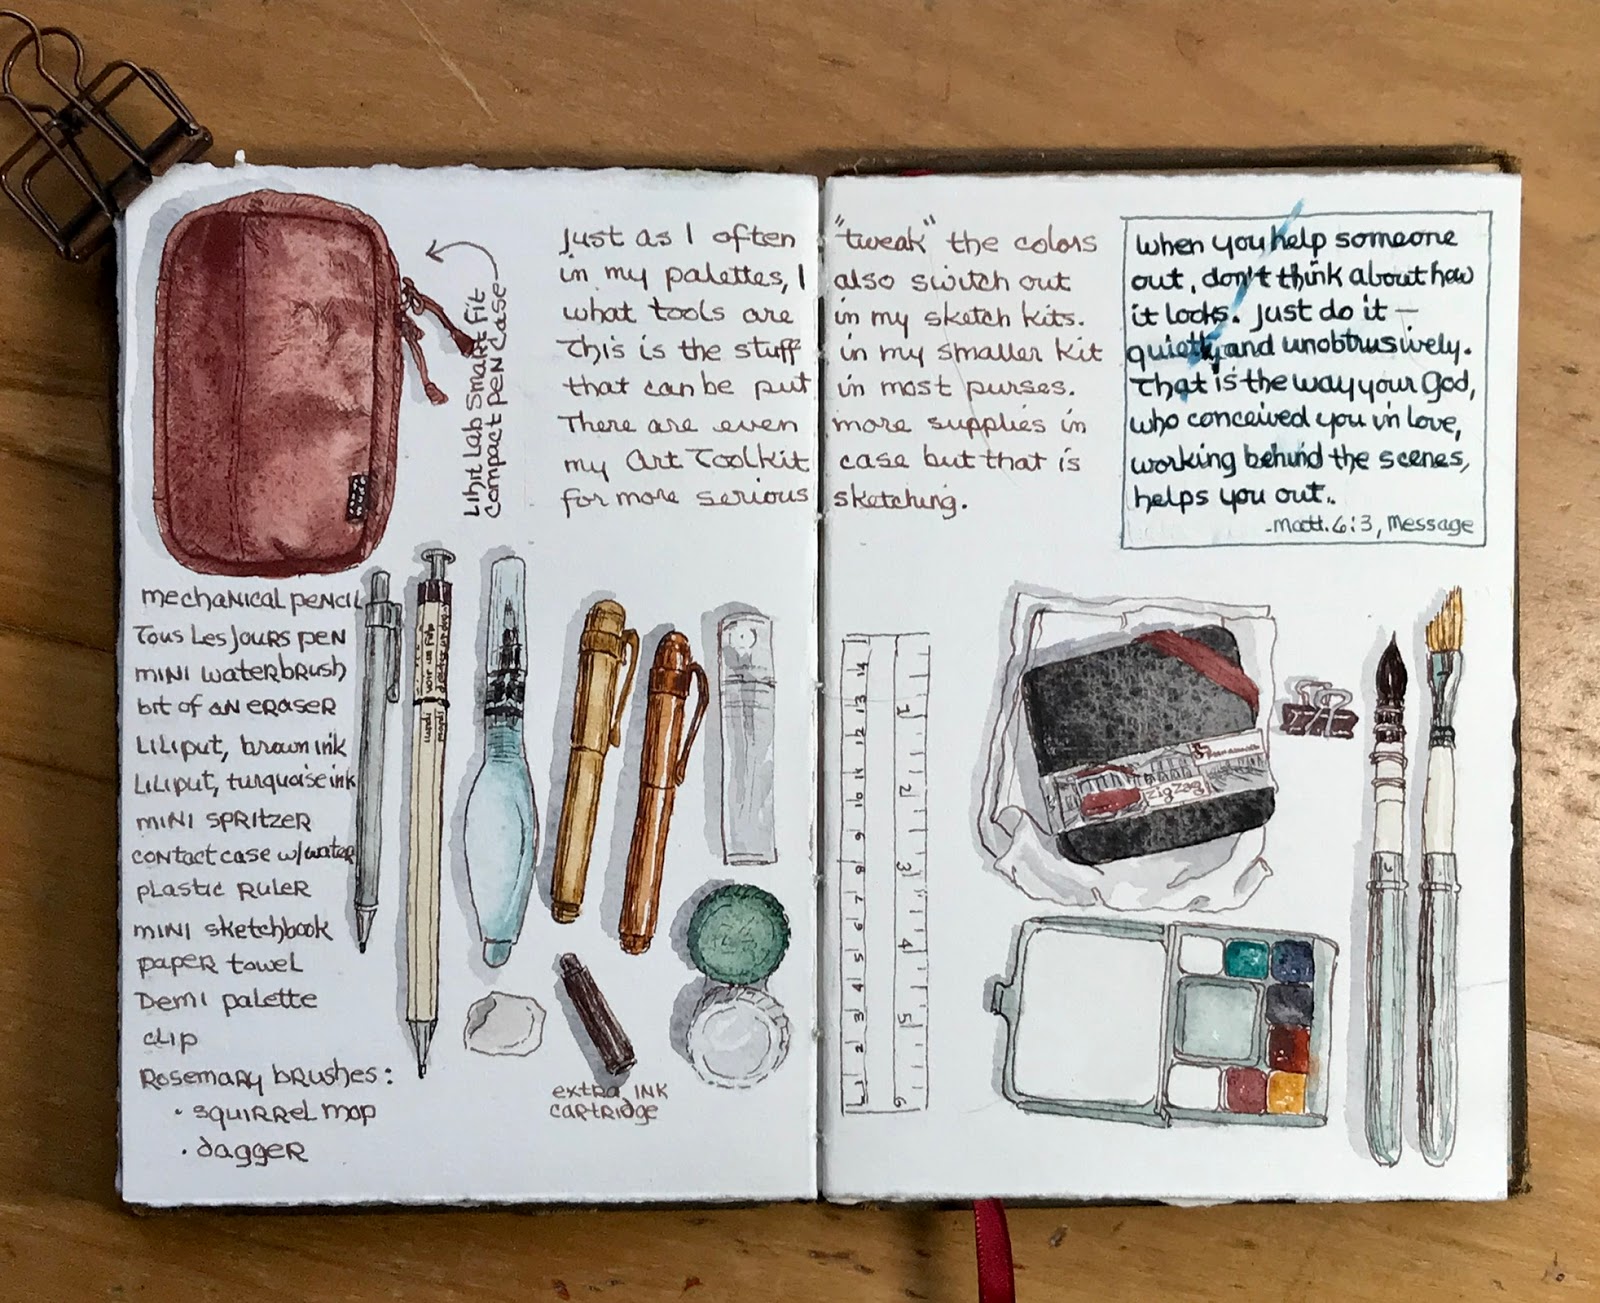 Lihit Lab Smart Fit
Compact Pen Case
just as I often "tweak" the colors
in my palettes, I also switch out
what tools are in my sketch kits.
This is the stuff in my smaller kit
that can be put in most purses.
There are even more supplies in
my Art Toolkit case but that is
for more serious sketching.
When you help someone
out, don't think about how
it looks. Just do it —
quietly and unobtrusively.
That is the way your God,
who conceived you in love,
working behind the scenes,
helps you out.
-Matt. 6:3, Message
mechanical pencil
Tous Les Jours pen
mini waterbrush
bit of an eraser
Liliput, brown ink
Liliput, turquoise ink
mini spritzer
contact case w/water
plastic ruler
mini sketchbook
paper towel
Demi palette
clip
Rosemary brushes:
• squirrel mop
• dagger
extra ink
cartridge
14
13
12
11
10
9
8
7
6
5
4
3
2
1
1
2
3
4
5
6
ZigZag